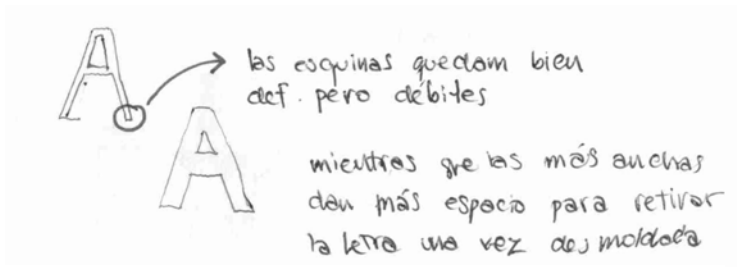 A
las esquinas quedam bien
def. pero débiles
A
mientras qe las más anchas
dan más espacio para retirar
la letra una vez desmoldada